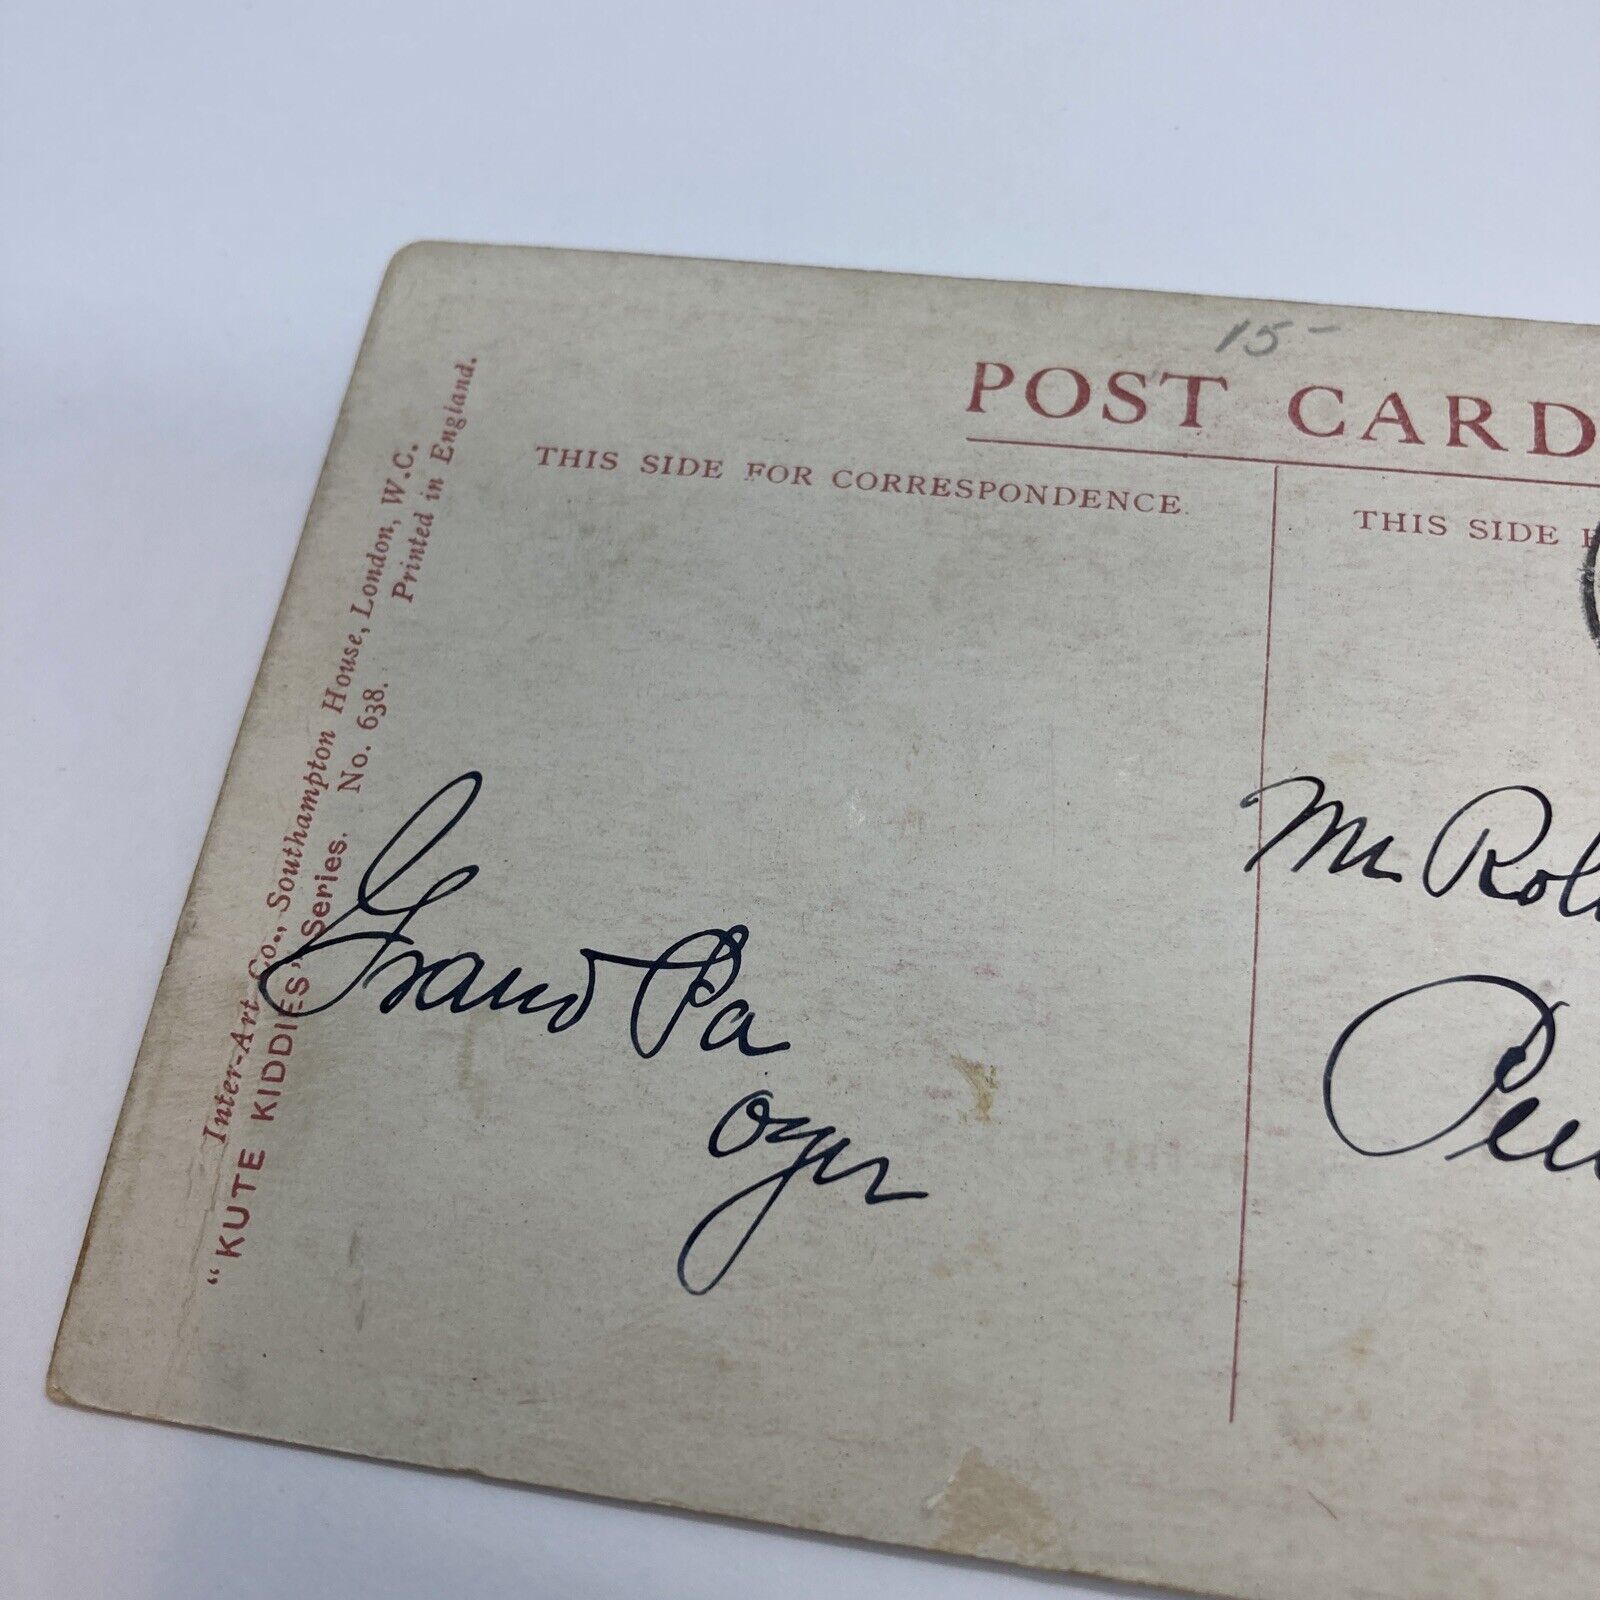 15-
POST CARD
THIS SIDE FOR CORRESPONDENCE.
THIS SIDE
Inter-Art Co., Southampton House, London, W.C.
"KUTE KIDDIES" Series. No. 638. Printed in England.
Grand Pa
Oyer
Mr